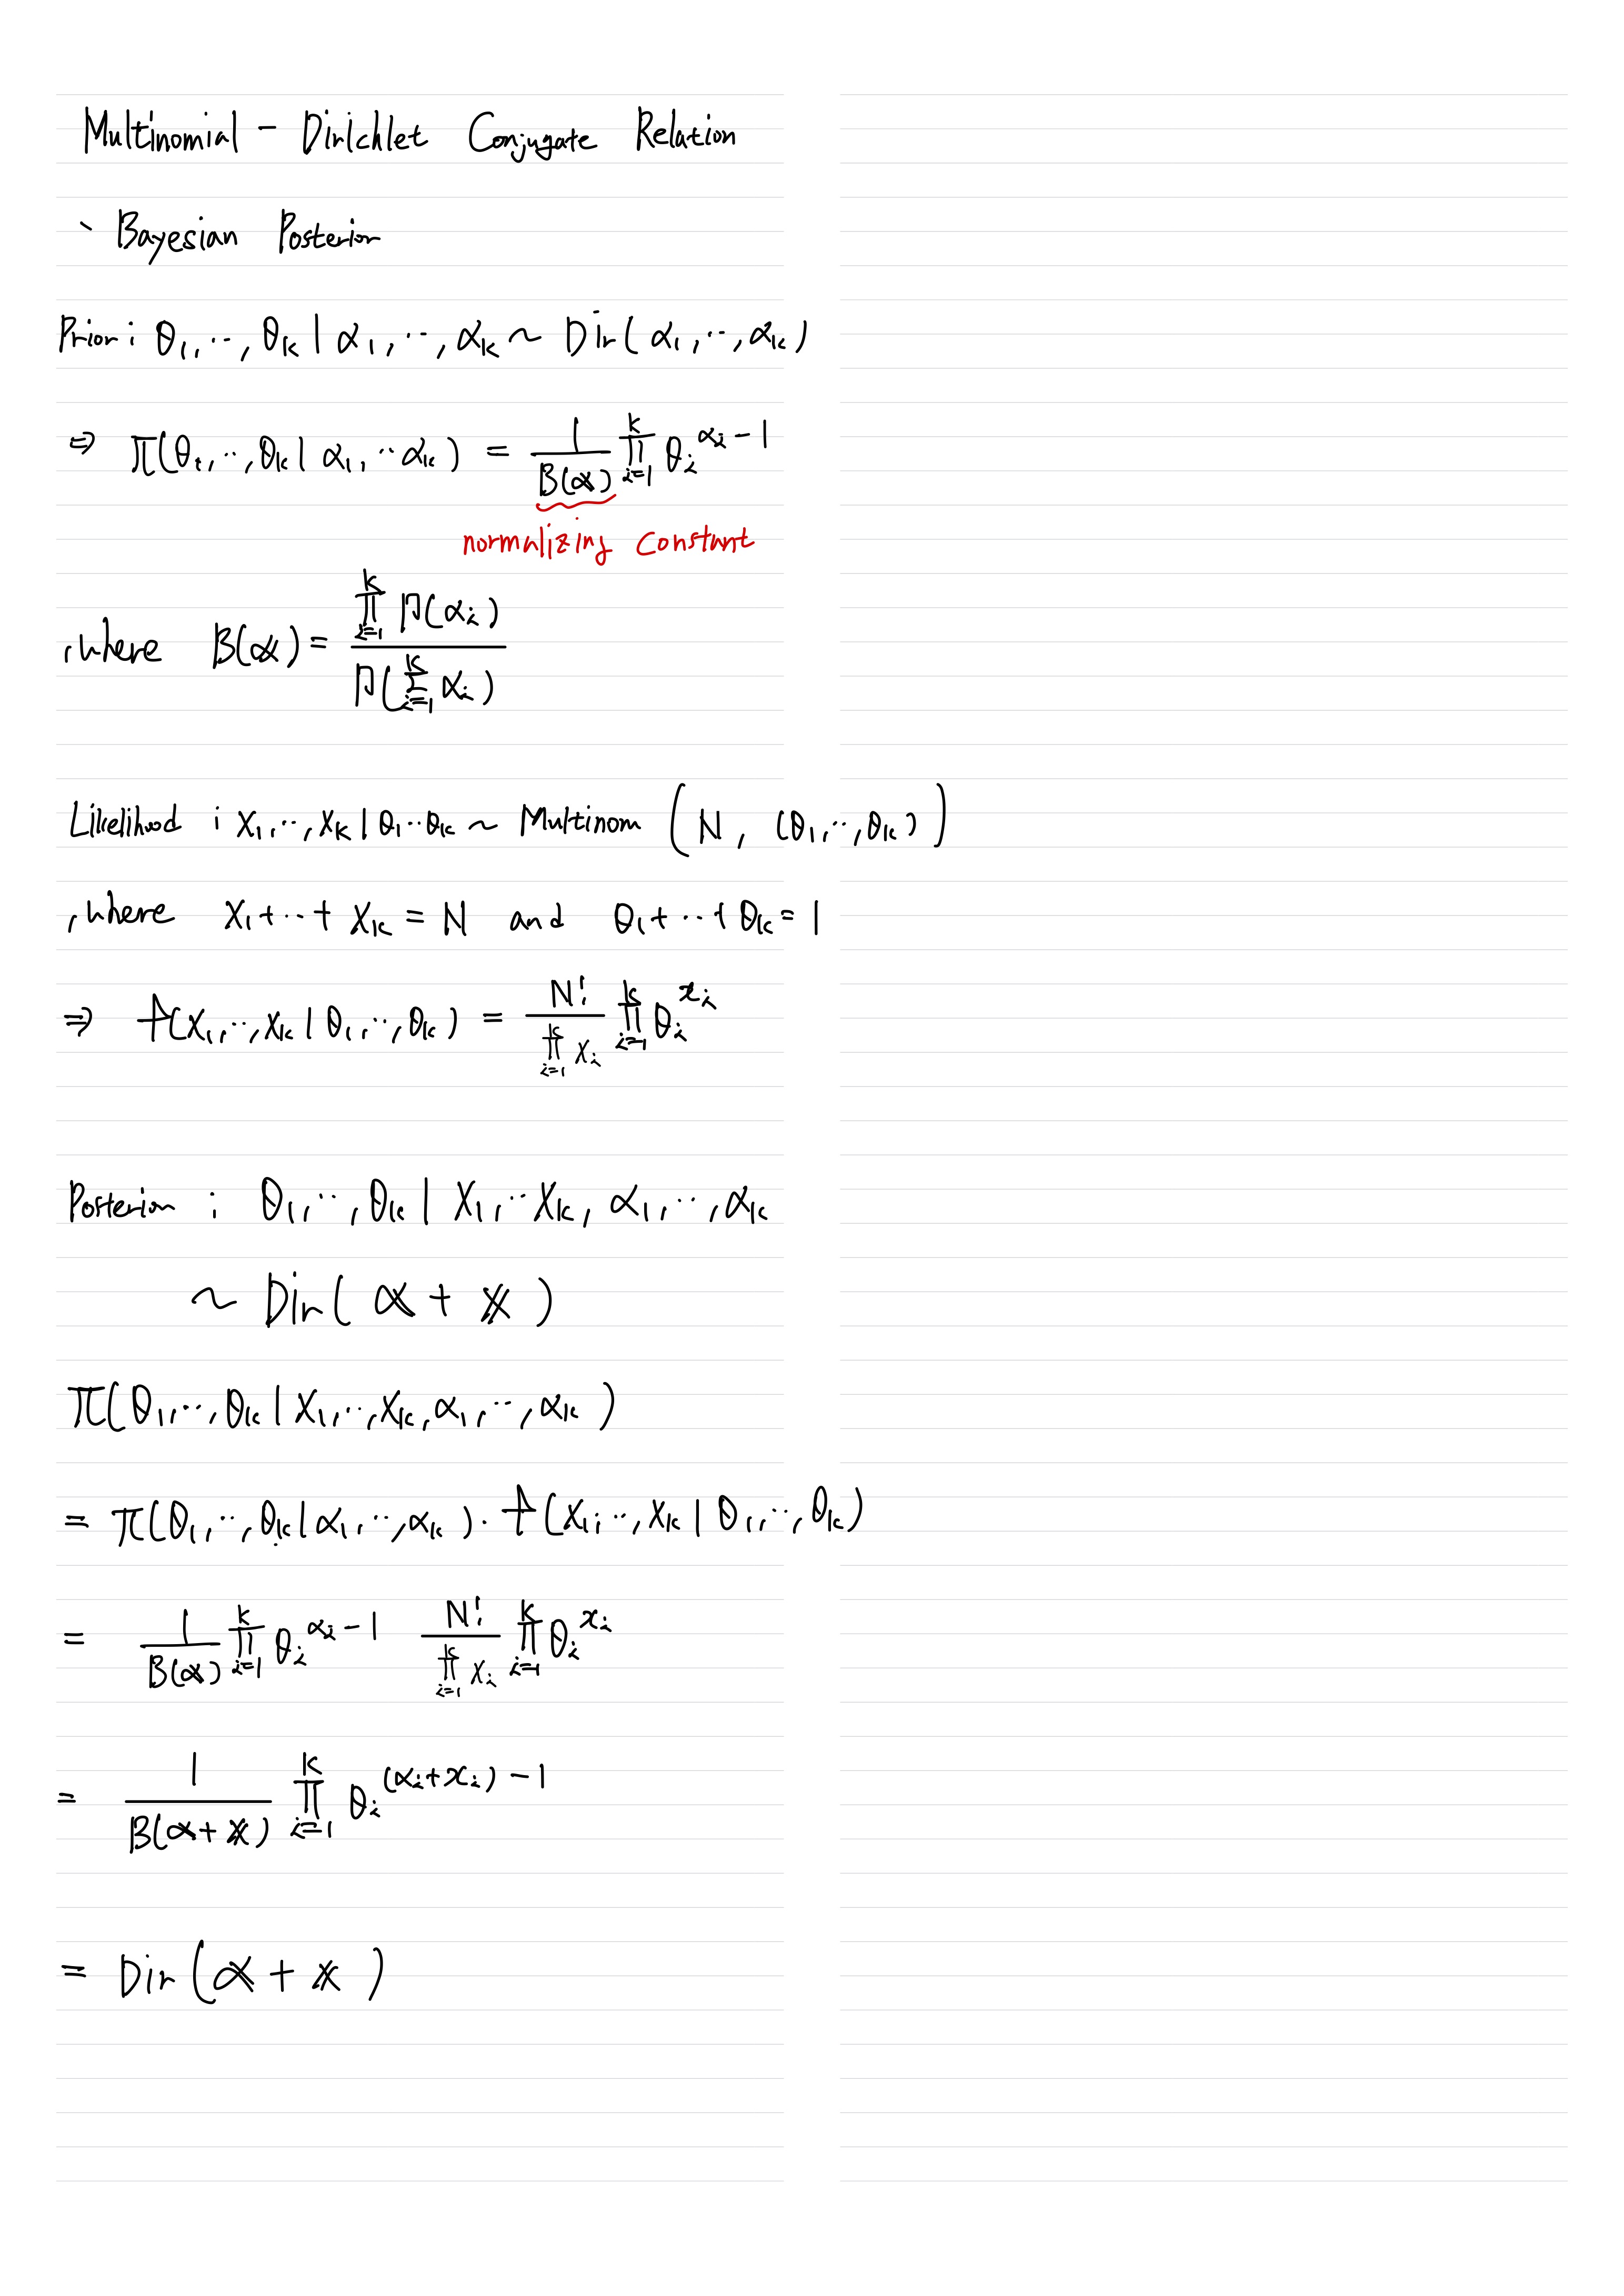 Multinomial - Dirichlet Conjugate Relation
` Bayesian Posterior
Prior : θ₁, ⋯, θₖ | α₁, ⋯, αₖ ~ Dir( α₁, ⋯, αₖ )
⇒ π(θ₁, ⋯, θₖ | α₁, ⋯ αₖ ) = 1/B(α) ∏_{i=1}^{k} θᵢ^{αᵢ - 1}
normalizing constant
, where B(α) = ∏_{i=1}^{k} Γ(αᵢ) / Γ( ∑_{i=1}^{k} αᵢ )
Likelihood : X₁, ⋯, Xₖ | θ₁ ⋯ θₖ ~ Multinom ( N, (θ₁, ⋯, θₖ ) )
, where X₁ + ⋯ + Xₖ = N and θ₁ + ⋯ + θₖ = 1
⇒ f(x₁, ⋯, xₖ | θ₁, ⋯, θₖ ) = N! / ∏_{i=1}^{k} xᵢ ∏_{i=1}^{k} θᵢ^{xᵢ}
Posterior : θ₁, ⋯, θₖ | X₁, ⋯ Xₖ, α₁, ⋯, αₖ
~ Dir( α + x )
π( θ₁, ⋯, θₖ | X₁, ⋯, Xₖ, α₁, ⋯, αₖ )
= π(θ₁, ⋯, θₖ | α₁, ⋯, αₖ ) · f(x₁, ⋯, xₖ | θ₁, ⋯, θₖ)
= 1/B(α) ∏_{i=1}^{k} θᵢ^{αᵢ - 1} N! / ∏_{i=1}^{k} xᵢ ∏_{i=1}^{k} θᵢ^{xᵢ}
= 1/B(α + x) ∏_{i=1}^{k} θᵢ^{(αᵢ + xᵢ) - 1}
= Dir( α + x )